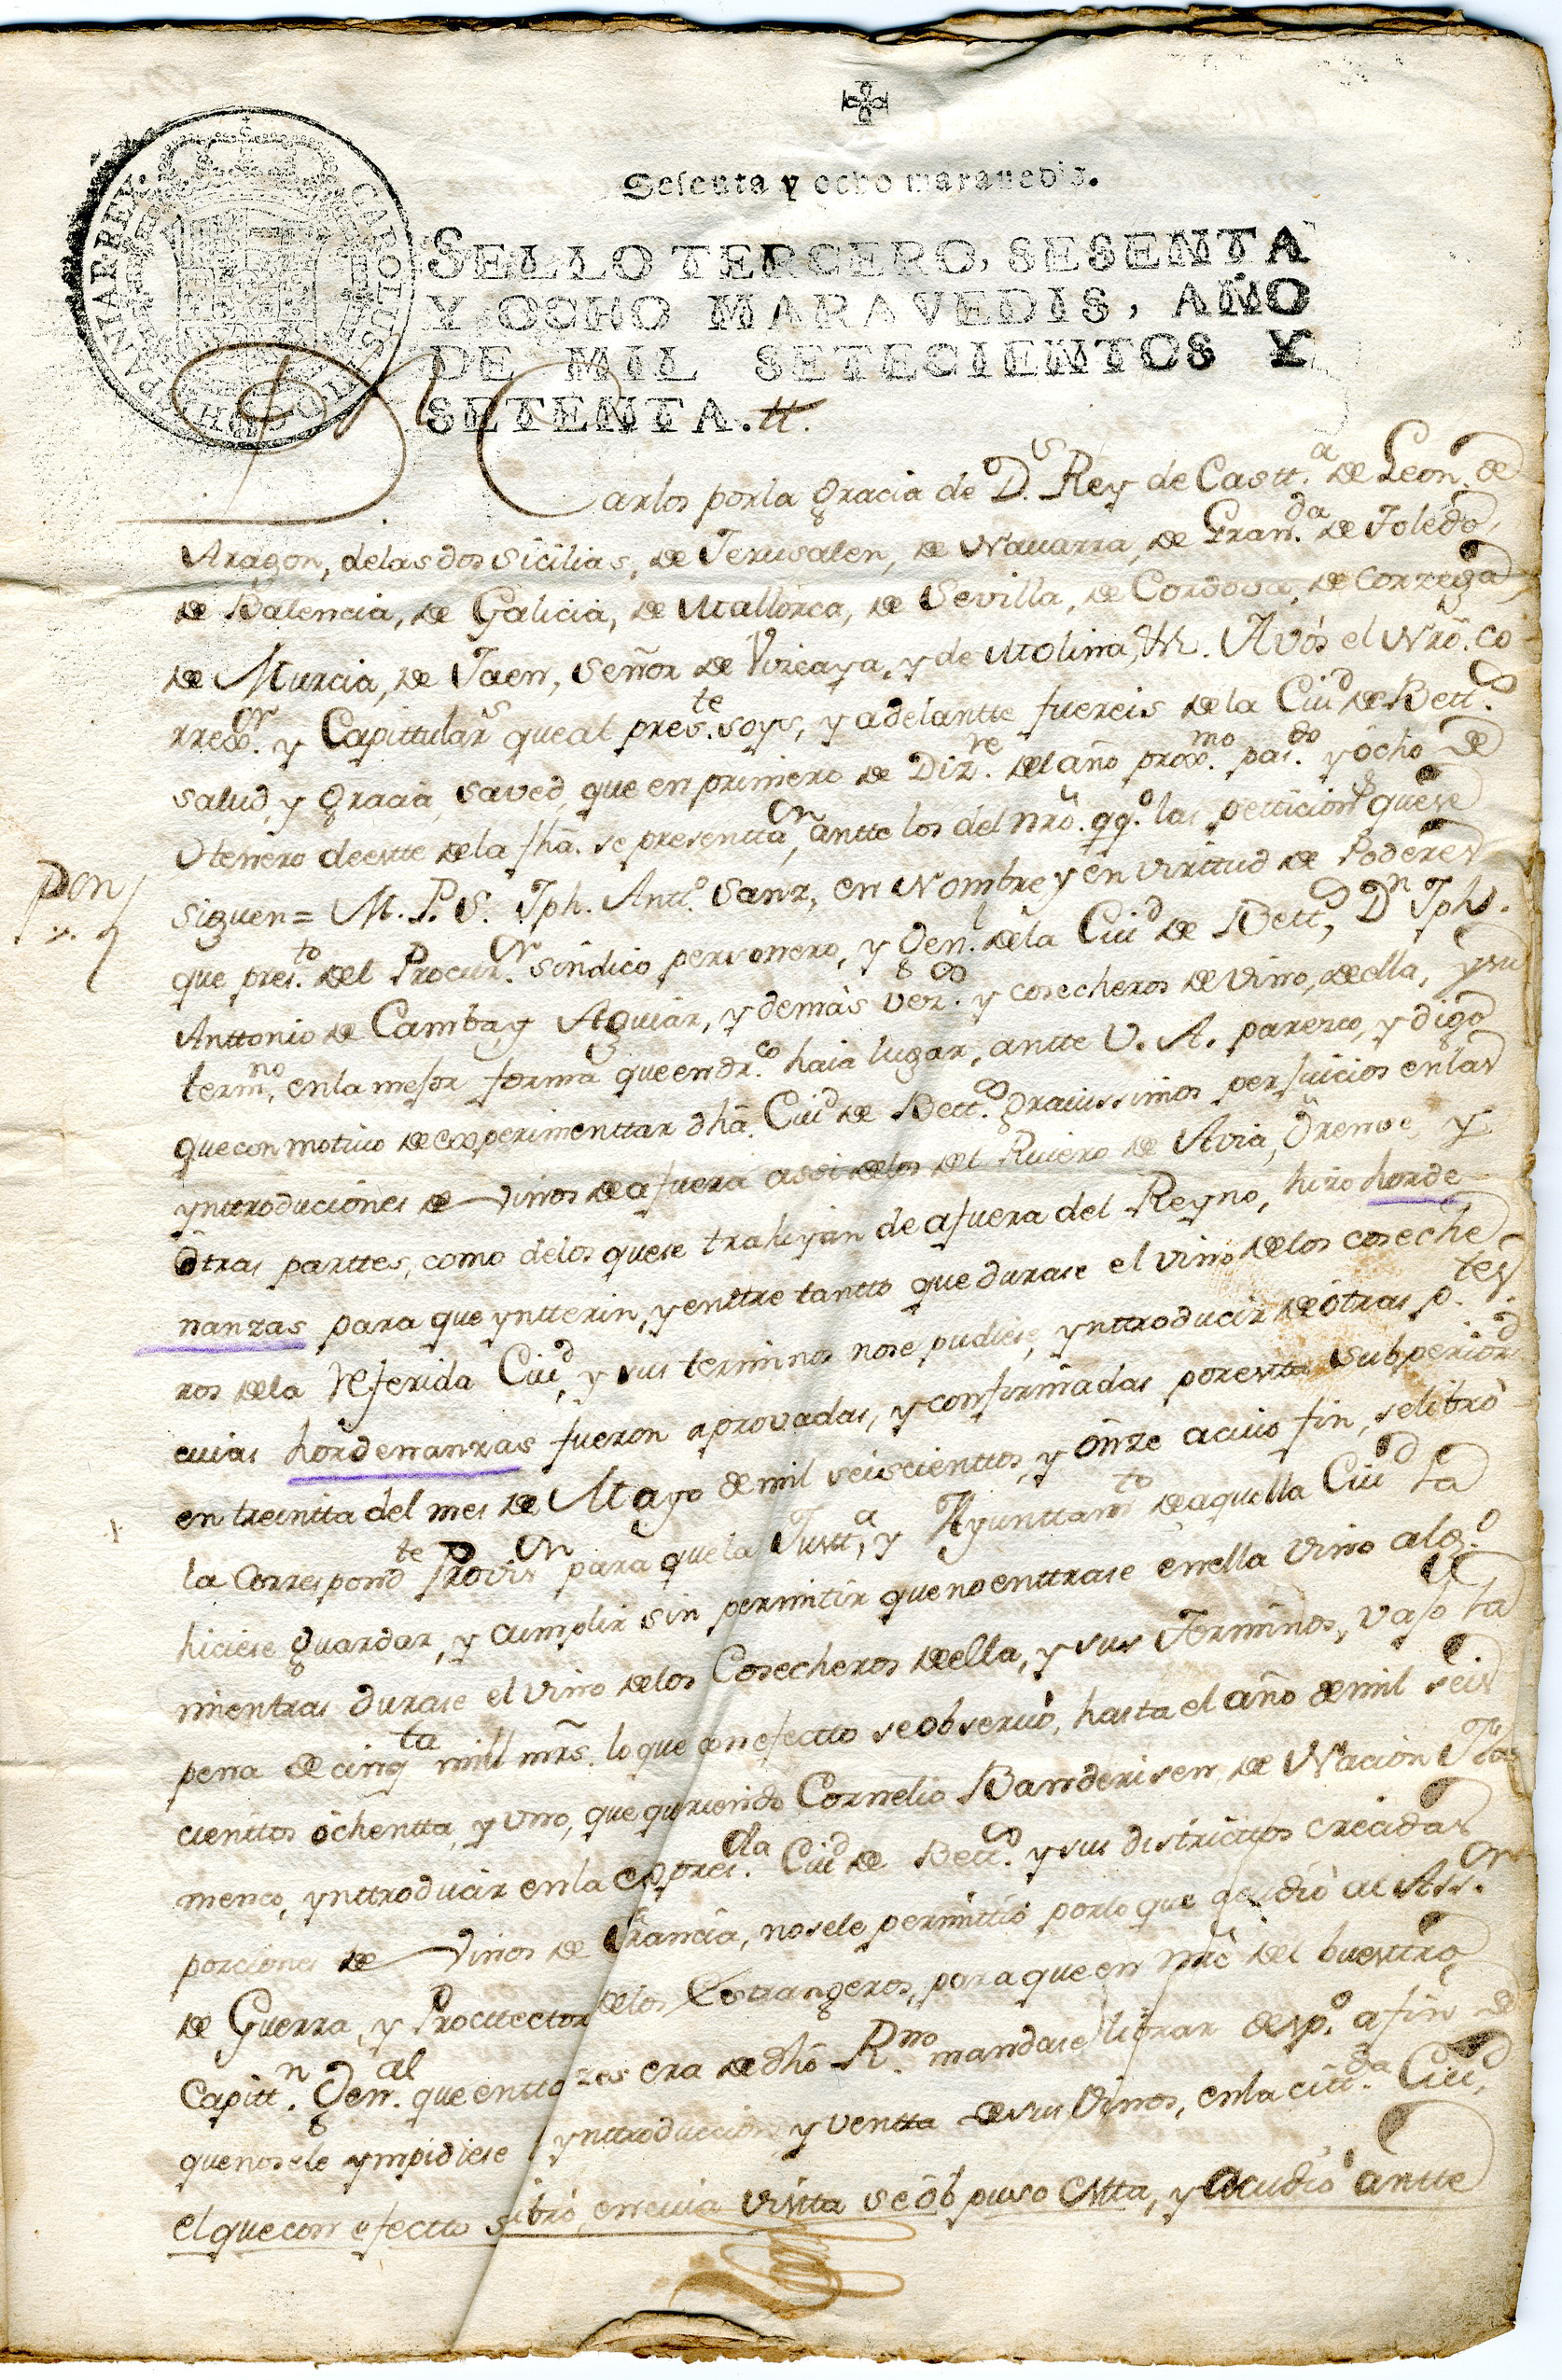 Sesenta y ocho maravedis.
CAROLUS III D G HISPANIAR REX.
SELLO TERCERO, SESENTA
Y OCHO MARAVEDIS, AÑO
DE MIL SETECIENTOS Y
SETENTA. tt.
Carlos por la gracia de D.s Rey de Castt.a de Leon, de
Aragon, de las dos Sicilias, de Jerusalen, de Nauarra, de Gran.da de Toledo,
de Balencia, de Galicia, de Mallorca, de Sevilla, de Cordova, de Corzega,
de Murcia, de Jaen, Señor de Vizcaya, y de Molina, &c. A vós el Nrō. Co
rrex.or y Capittulars que al pres.te soys, y adelantte fuereis de la Ciu.d de Bett.os
salud, y gracia, saved, que en primero de Diz.re del año prox.mo pas.do y ócho de
Henero de estte de la fhā. se presentta.on antte los del nrō. qq.o las petticion.s que se
siguen = M. P. S. Jph. Antt.o Sanz, en Nombre y en virttud de Poderes
Pon
que pres.to del Procur.or sindico personero, y Gen.l de la Ciu.d de Bett.os D.n Jph.
Anttonio de Camba, y Aguiar, y demàs vez.os y cosecheros de vino, de ella, y su
term.no, en la mejor forma que en dr.co haia lugar, antte V. A. parezco, y digo
que con motivo de experimenttar dhā. Ciu.d de Bett.os gravissimos perjuicios en las
ynttroduciones de vinos de afuera assi de los del Riviero de Avia, Orense, y
ótras parttes, como de los que se trahiyan de afuera del Reyno, hizo horde
nanzas para que yntterin, y enttre tantto que durase el vino de los coseche
ros de la referida Ciu.d, y sus terminos no se pudiese, ynttroducir de ótras p.tes
cuias hordenanzas fueron aprovadas, y confirmadas por estta Subperior.d
en treintta del mes de Mayo de mil seiscienttos, y onze a cuio fin, se libró
la Correspond.te Provis.on para que la Justt.a, y Ayunttam.to de aquella Ciu.d la
hiciese guardar, y cumplir sin permitir que no enttrase en ella vino alg.o
mientras durase el vino de los Cosecheros de ella, y sus Terminos, vajo la
pena de cinq.ta mill mrs. lo que con efectto se observó, hasta el año de mil seis
cienttos ôchentta, y uno, que queriendo Cornelio Banderisen de Nacion Fla
menco, ynttroducir en la expres.da Ciu.d de Bett.os y sus districttos crecidas
porciones de vinos de Francia, no se le permittió por lo que acudió al Ass.or
de Guerra, y Procttector de los Extrangeros, para que en nrē del buesttro
Capitt.n Gen.al que enttonzes era de dhō R.no mandase librar desp.o a fin de
que no se le ympidiese ynttroduccion y ventta de sus Vinos, en la citt.da Ciu.d,
el que con efectto libró, en cuia vistta se ôbpuso estta, y acudió antte